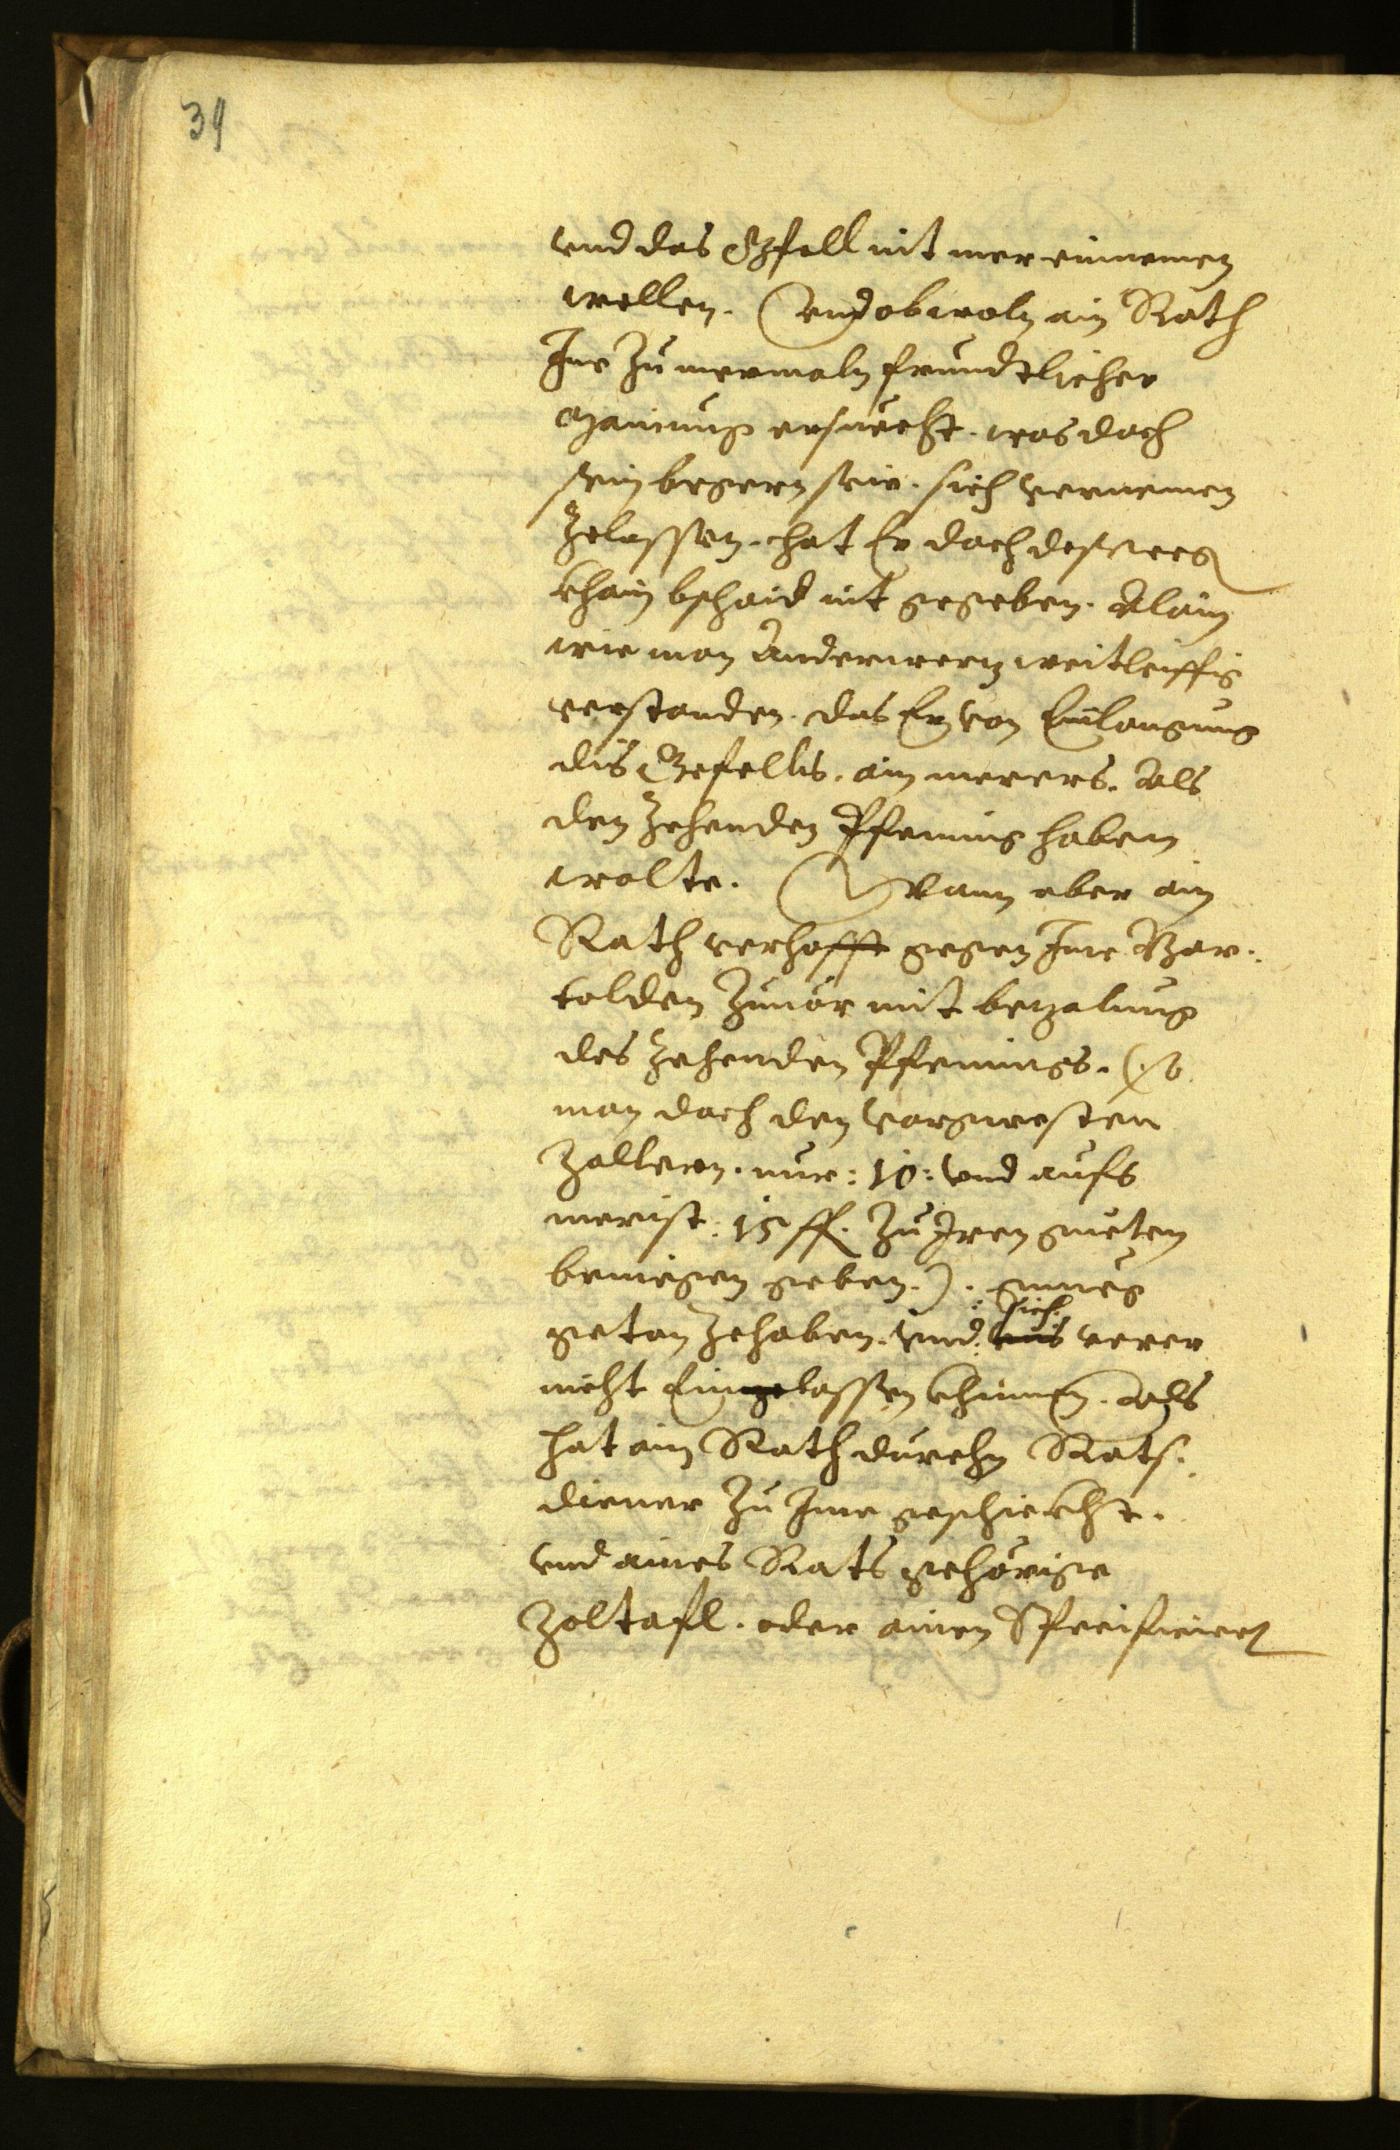 34
vnd das Gfell nit mer einnemen
wellen. Vnd obwoln ain Rath
Ime zu mermaln freundtlicher
mainung ersuecht. was doch
sein begern seie. sich vernemen
zelassen. hat Er doch desswegen
khain bschaid nit gegeben. Alain
wie man Anderwerz weitleiffig
verstanden. das Er von Einlangung
dis Gefells. ain merers. Als
den zehenden Pfening haben
wolte. Wann aber ain
Rath verhofft gegen Ime Bar-
tolden zuuor mit bezalung
des zehenden Pfenings. (so
man doch den vorgwesten
Zollern. nur: 10: vnd aufs
meist: 15 fl. zu Iren guetem
beniegen geben.). gnueg
getan zehaben. vnd sich verer
nicht Einzelassen khinnen. Als
hat ain Rath durchn Rats-
diener zu Ime geschickht.
vnd aines Rats gehörige
Zoltafl. oder ainen Specificiert